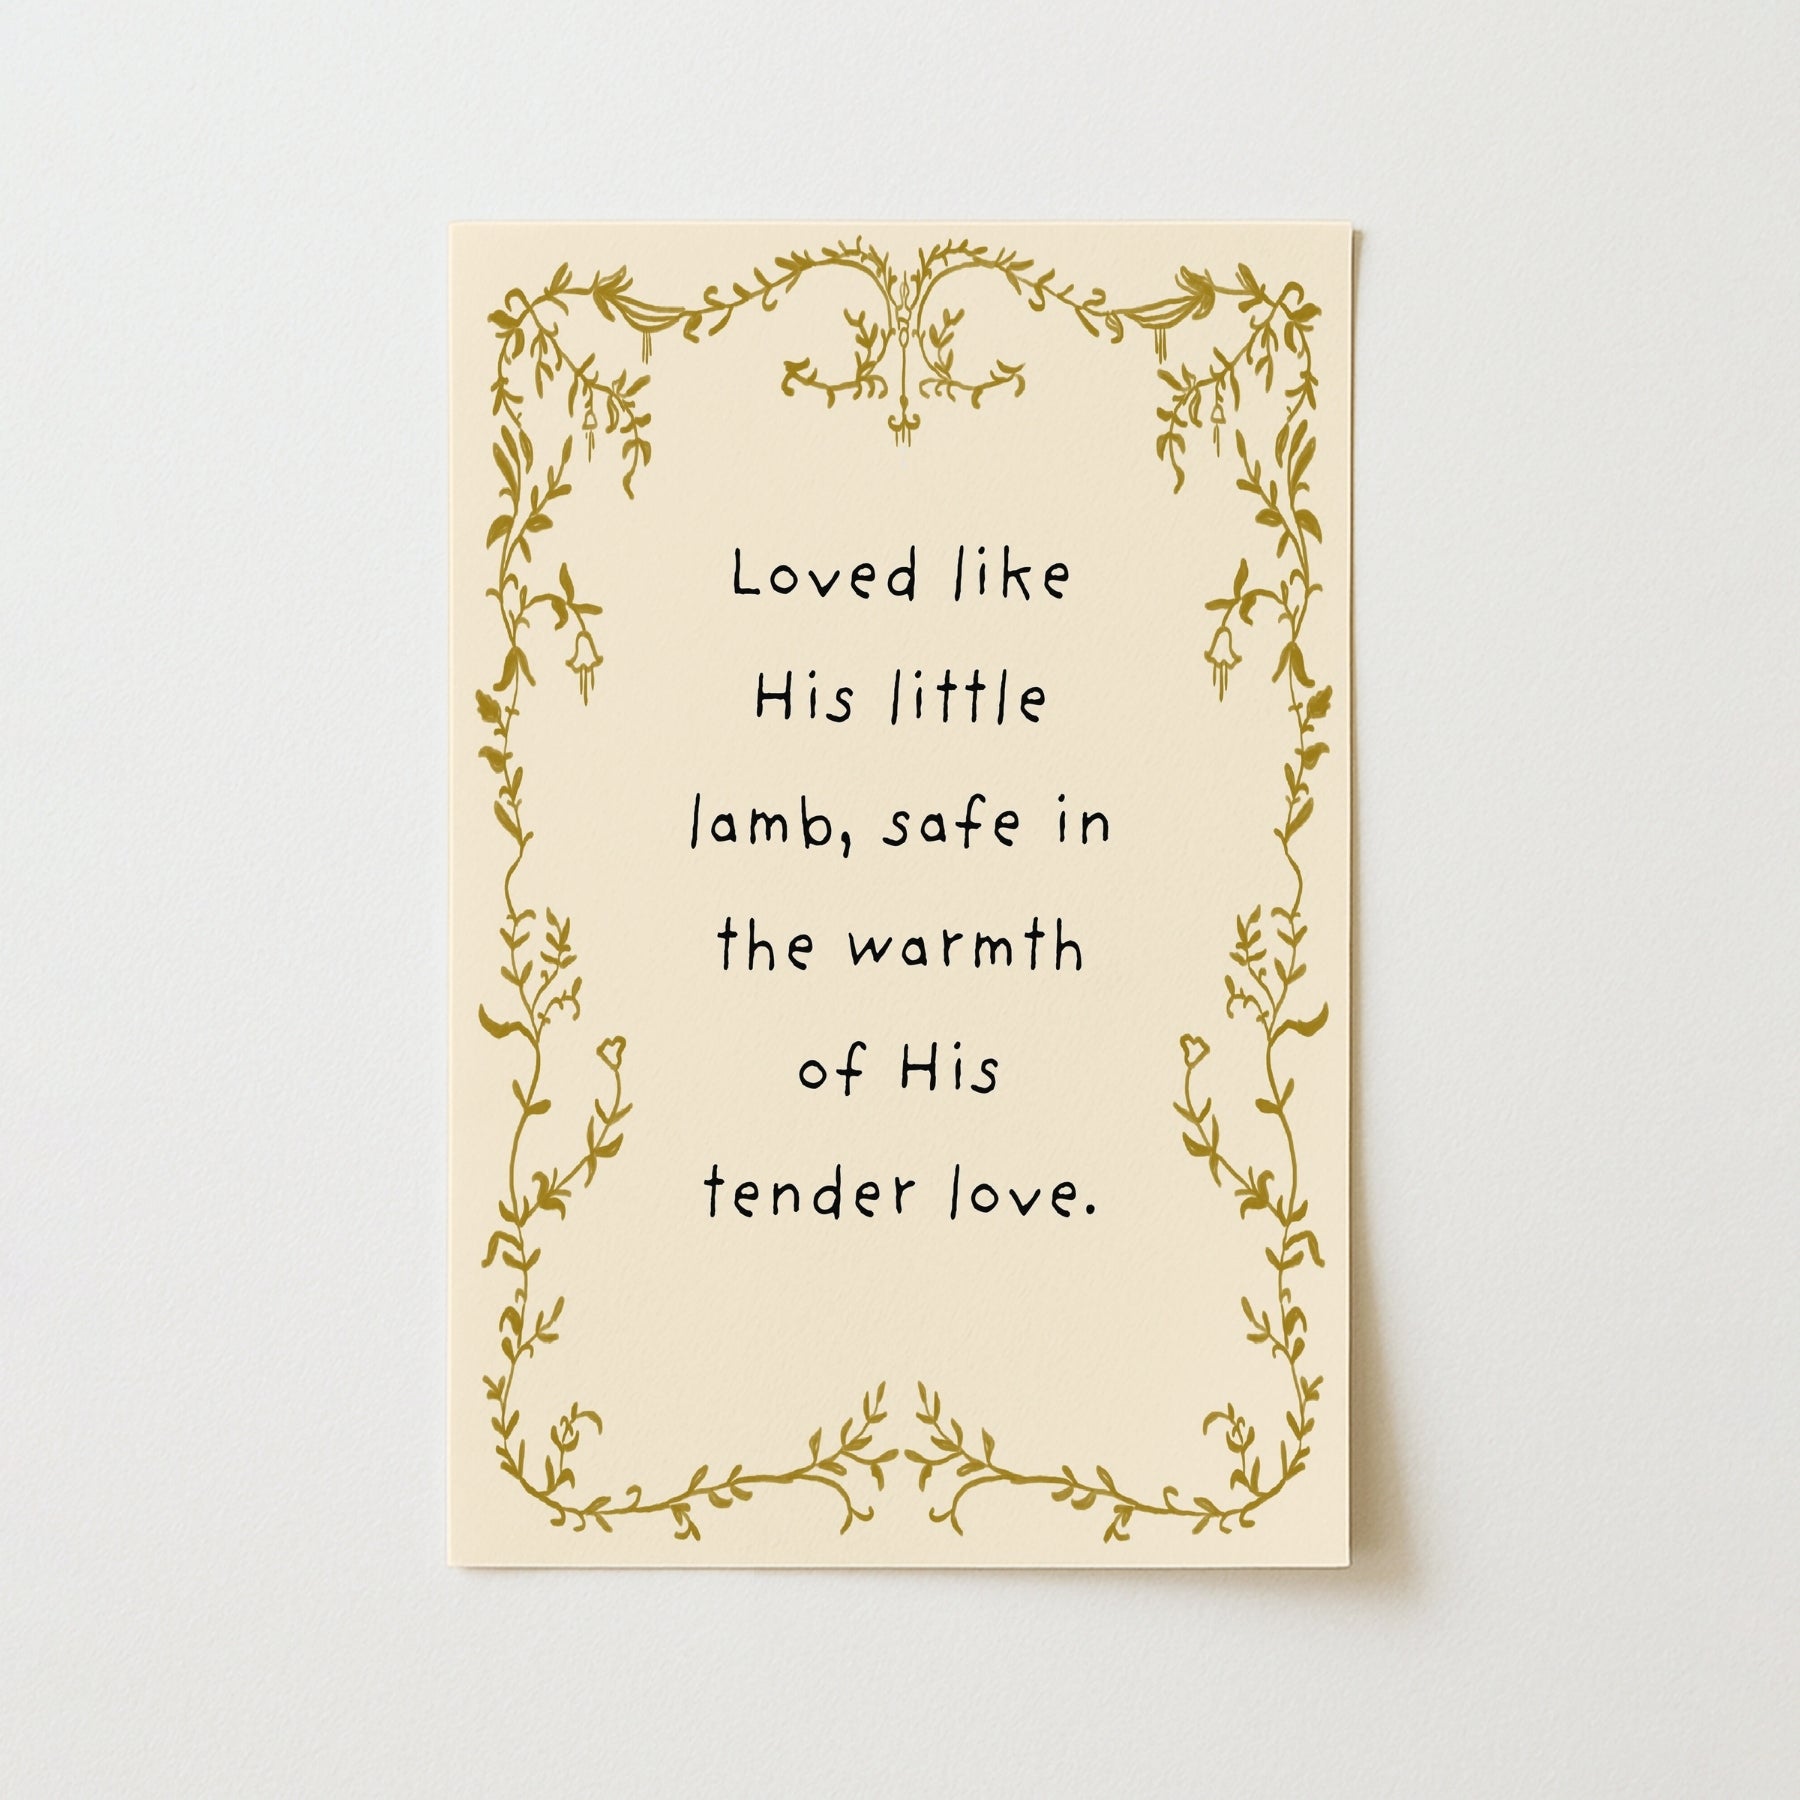 Loved like
His little
lamb, safe in
the warmth
of His
tender love.